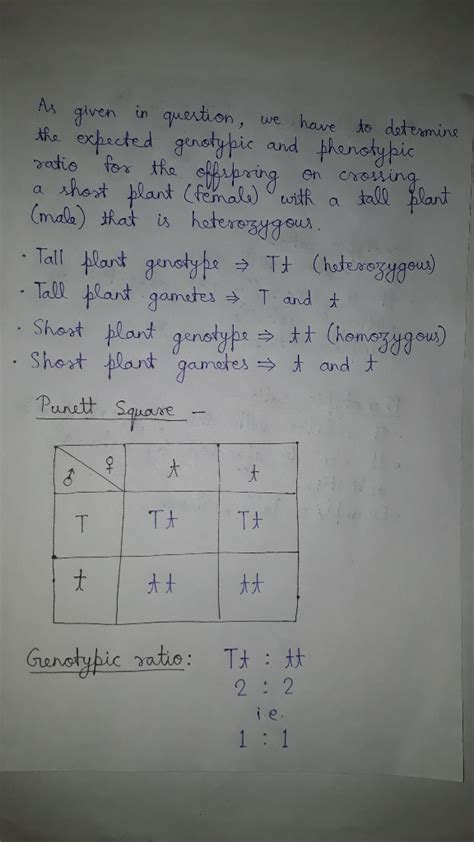 As given in question, we have to determine
the expected genotypic and phenotypic
ratio for the offspring on crossing
a short plant (female) with a tall plant
(male) that is heterozygous.
· Tall plant genotype ⇒ Tt (heterozygous)
· Tall plant gametes ⇒ T and t
· Short plant genotype ⇒ tt (homozygous)
· Short plant gametes ⇒ t and t
Punett Square –
♂ ♀ t t
T Tt Tt
t tt tt
Genotypic ratio: Tt : tt
2 : 2
i.e.
1 : 1